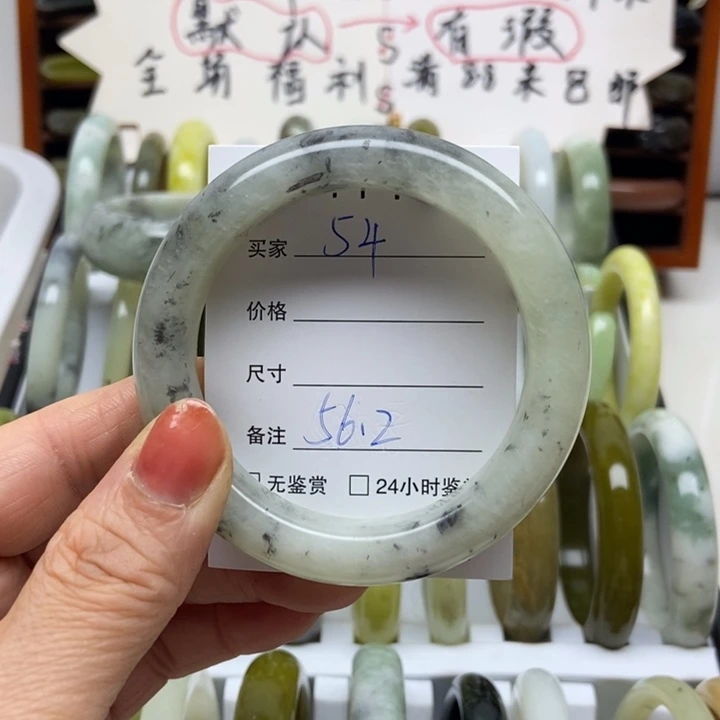 默认 → 有瑕
全角福利
S
S
买家 54
价格
尺寸
备注 56.2
无鉴赏 □ 24小时鉴